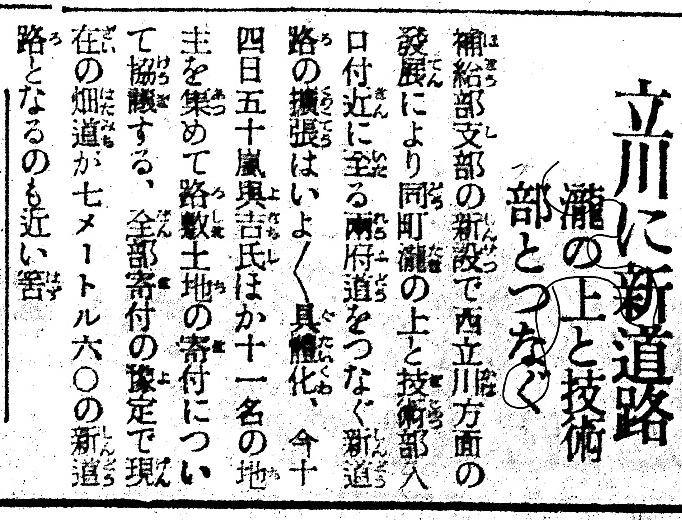 立川に新道路
瀧の上と技術
部とつなぐ
補給部支部の新設で西立川方面の
發展により同町瀧の上と技術部入
口付近に至る兩府道をつなぐ新道
路の擴張はいよ〱具體化、今十
四日五十嵐與吉氏ほか十一名の地
主を集めて路敷土地の寄付につい
て協議する、全部寄付の豫定で現
在の畑道が七メートル六〇の新道
路となるのも近い筈